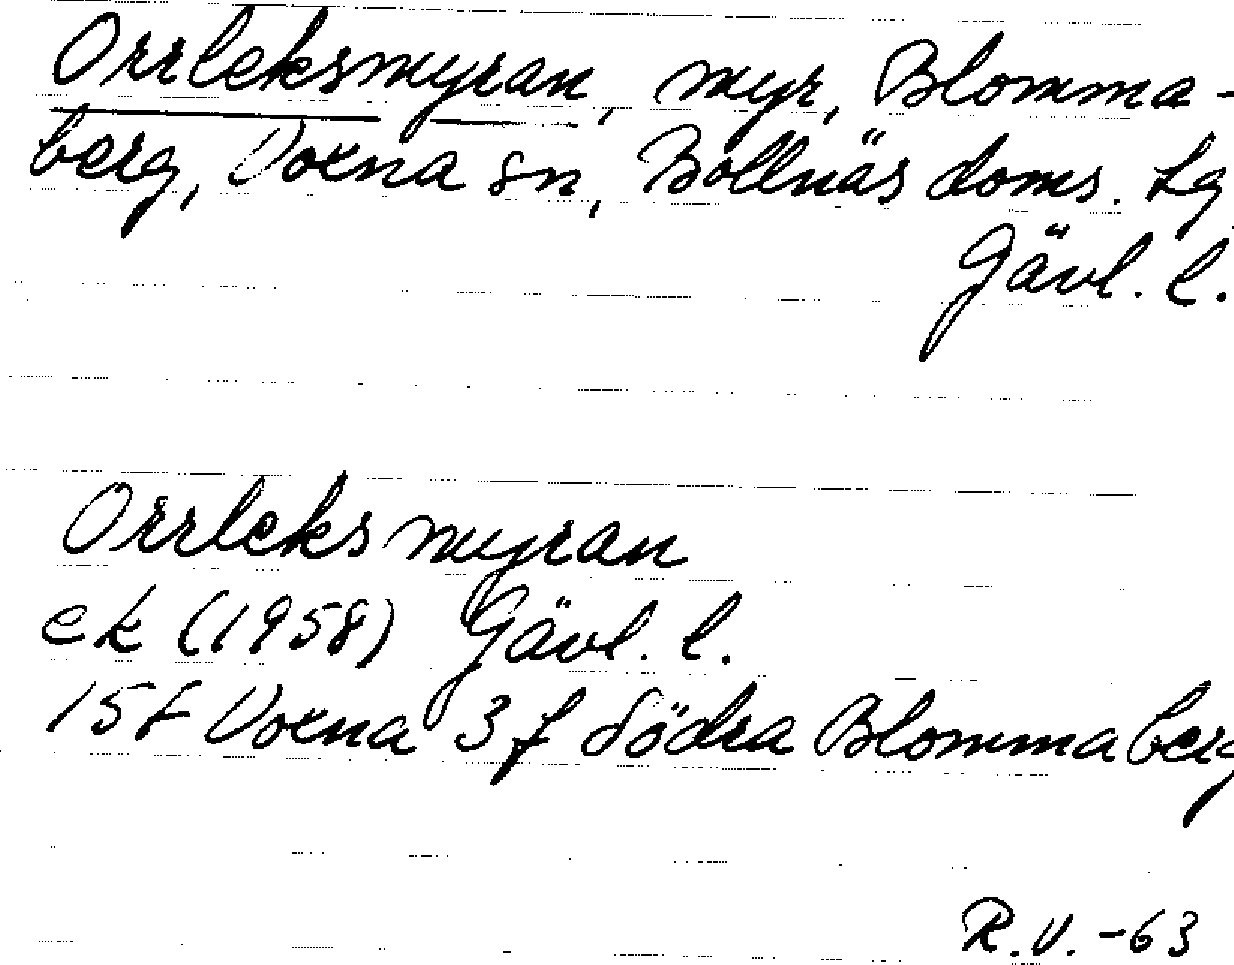 Orrleksmyran, myr, Blomma-
berg, Voxna sn, Bollnäs doms. Lg
Gävl. l.
Orrleksmyran
ek (1958) Gävl. l.
15f Voxna 3f Södra Blommaberg
R.V. -63